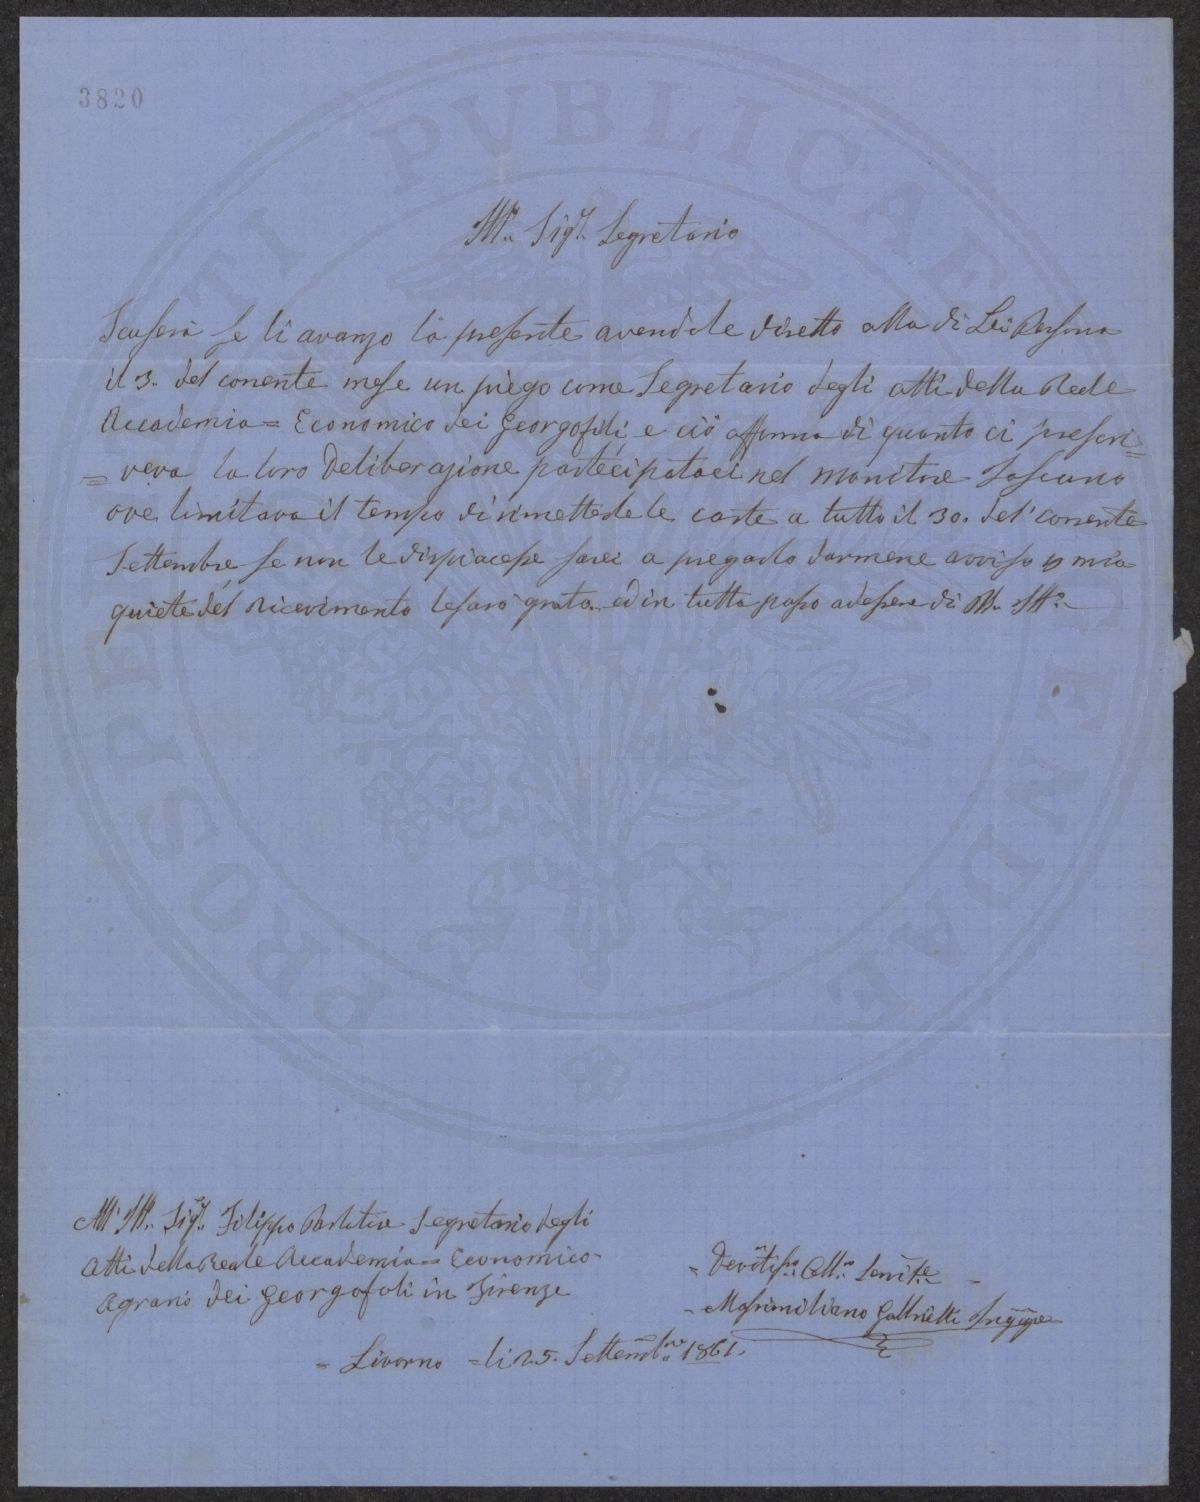 3820
PROSPERITATI PVBLICAE AVGENDAE
Ill.mo Sigr. Segretario
Scuserà se li avanzo la presente avendole diretto alla di Lei Persona
il 3. del corrente mese un piego come Segretario degli atti della Reale
Accademia = Economico dei Georgofili e ciò afforma di quanto ci prescri=
= veva la loro Deliberazione partecipataci nel Monitore Toscano
ove limitava il tempo di rimettede le carte a tutto il 30. del' corrente
Settembre se non le dispiacesse sarei a pregarlo darmene avviso p mia
quiete del ricevimento le sarò grato. ed in tutta passo adessere di
All' Ill. Sigr. Filippo Segretario degli
Atti della Reale Accademia = Economico
Agrario dei Georgofoli in Firenze
= Devotiss.mo Servit.e
- Massimiliano Ingegnere
= Livorno = li 25. Settembre 1861.